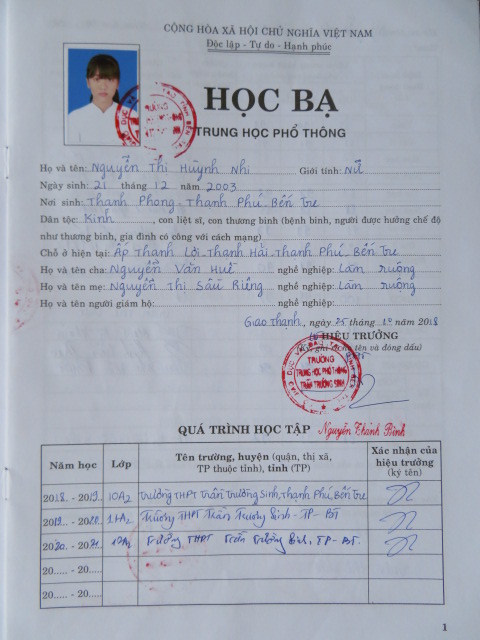 CỘNG HÒA XÃ HỘI CHỦ NGHĨA VIỆT NAM
Độc lập - Tự do - Hạnh phúc
HỌC BẠ
TRUNG HỌC PHỔ THÔNG
Họ và tên: Nguyễn Thị Huỳnh Nhi Giới tính: Nữ
Ngày sinh: 21 tháng 12 năm 2003
Nơi sinh: Thạnh Phong - Thạnh Phú - Bến Tre
Dân tộc: Kinh, con liệt sĩ, con thương binh (bệnh binh, người được hưởng chế độ
như thương binh, gia đình có công với cách mạng)
Chỗ ở hiện tại: Ấp Thạnh Lợi - Thạnh Hải - Thạnh Phú - Bến Tre
Họ và tên cha: Nguyễn Văn Huề nghề nghiệp: Làm ruộng
Họ và tên mẹ: Nguyễn Thị Sầu Riêng nghề nghiệp: Làm ruộng
Họ và tên người giám hộ: nghề nghiệp:
Giao Thạnh, ngày 25 tháng 10 năm 2018
HIỆU TRƯỞNG
(Ký, ghi rõ họ tên và đóng dấu)
TRƯỜNG
TRUNG HỌC PHỔ THÔNG
TRẦN TRƯỜNG SINH
QUÁ TRÌNH HỌC TẬP Nguyễn Thành Bình
Năm học Lớp Tên trường, huyện (quận, thị xã, TP thuộc tỉnh), tỉnh (TP) Xác nhận của hiệu trưởng (ký tên)
2018 - 2019 10A2 Trường THPT Trần Trường Sinh, Thạnh Phú, Bến Tre
2019 - 2020 11A2 Trường THPT Trần Trường Sinh - TP - BT
2020 - 2021 12A2 Trường THPT Trần Trường Sinh, TP - BT
20..... - 20.....
20..... - 20.....
1